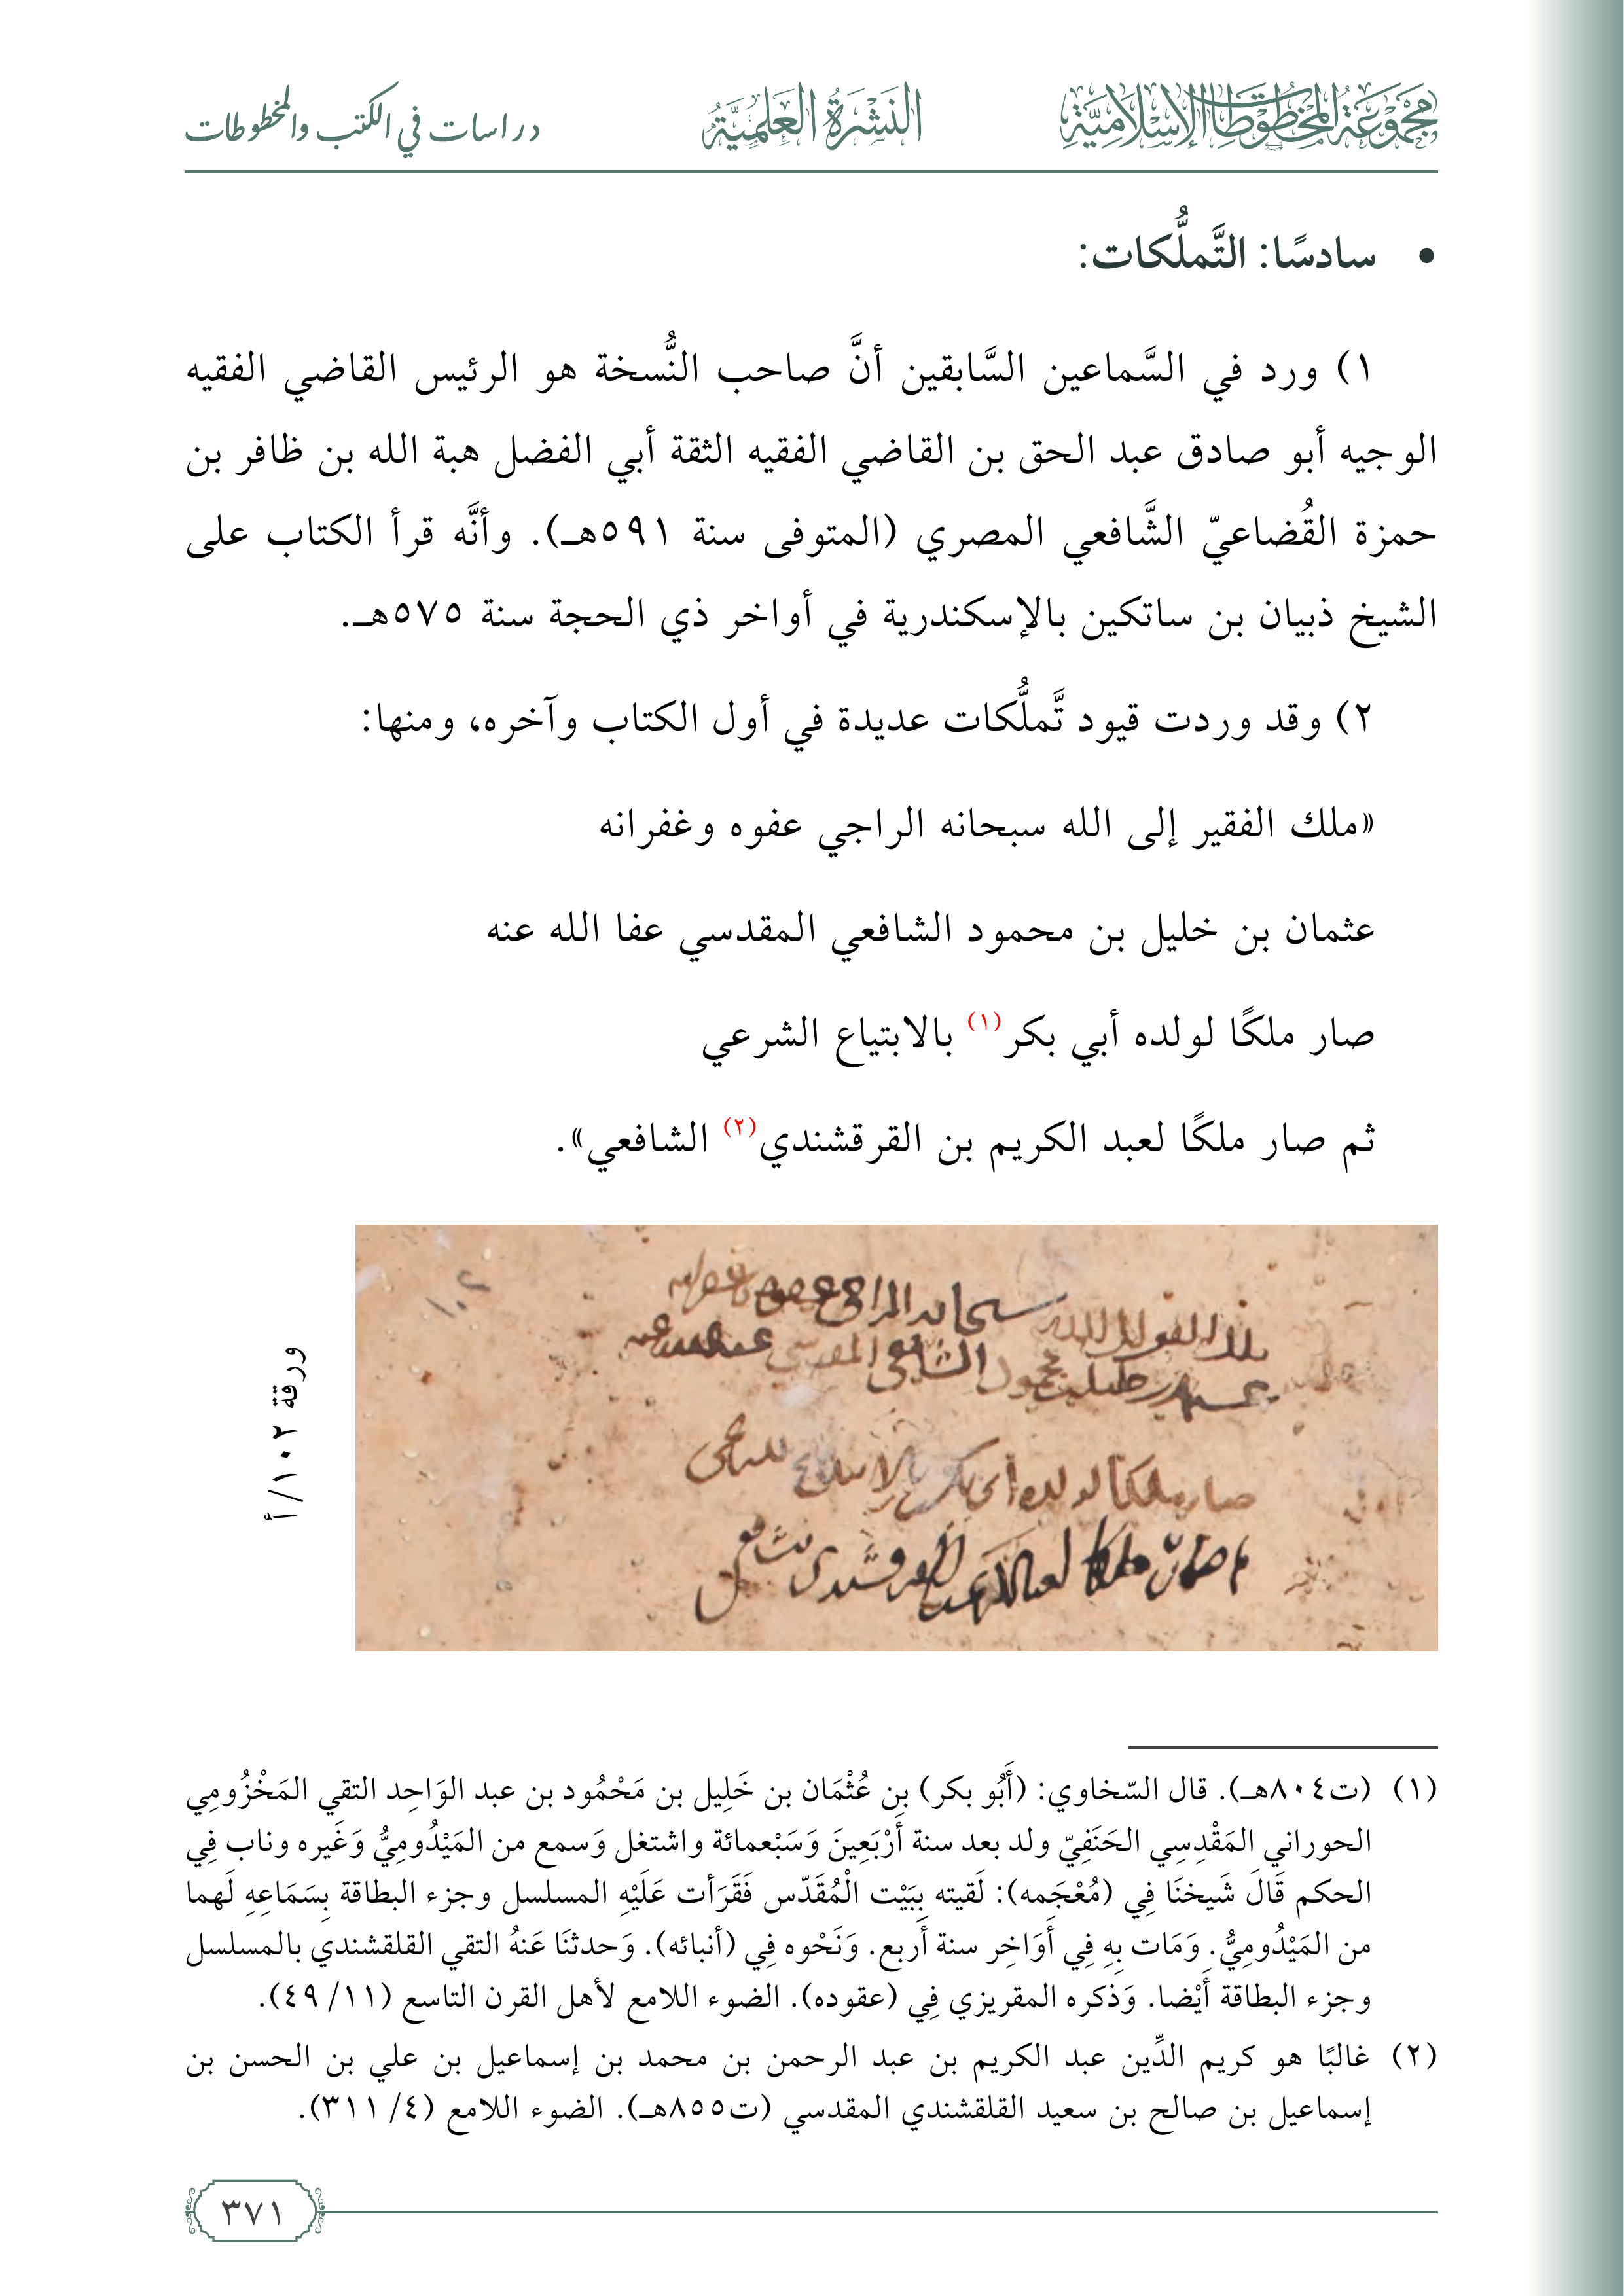 مجموعة المخطوطات الإسلامية
النَّشرَةُ العِلميَّةُ
دراسات في الكتب والمخطوطات
• سادسًا: التَّملُّكات:
١) ورد في السَّماعين السَّابقين أنَّ صاحب النُّسخة هو الرئيس القاضي الفقيه
الوجيه أبو صادق عبد الحق بن القاضي الفقيه الثقة أبي الفضل هبة الله بن ظافر بن
حمزة القُضاعيّ الشَّافعي المصري (المتوفى سنة ٥٩١هـ). وأنَّه قرأ الكتاب على
الشيخ ذبيان بن ساتكين بالإسكندرية في أواخر ذي الحجة سنة ٥٧٥هـ.
٢) وقد وردت قيود تَّملُّكات عديدة في أول الكتاب وآخره، ومنها:
«ملك الفقير إلى الله سبحانه الراجي عفوه وغفرانه
عثمان بن خليل بن محمود الشافعي المقدسي عفا الله عنه
صار ملكًا لولده أبي بكر(١) بالابتياع الشرعي
ثم صار ملكًا لعبد الكريم بن القرقشندي(٢) الشافعي».
١٠٢
ملك الفقير إلى الله سبحانه الراجي عفوه وغفرانه
عثمان بن خليل بن محمود الشافعي المقدسي عفا الله عنه
صار ملكا لولده أبي بكر بالابتياع الشرعي
ثم صار ملكا لعبد الكريم بن القرقشندي الشافعي
ورقة ١٠٢/أ
(١) (ت٨٠٤هـ). قال السّخاوي: (أَبُو بكر) بن عُثْمَان بن خَلِيل بن مَحْمُود بن عبد الوَاحِد التقي المَخْزُومِي
الحوراني المَقْدِسِي الحَنَفِيّ ولد بعد سنة أَرْبَعِينَ وَسَبْعمائة واشتغل وَسمع من المَيْدُومِيُّ وَغَيره وناب فِي
الحكم قَالَ شَيخنَا فِي (مُعْجَمه): لَقيته بِبَيْت الْمُقَدّس فَقَرَأت عَلَيْهِ المسلسل وجزء البطاقة بِسَمَاعِهِ لَهما
من المَيْدُومِيُّ. وَمَات بِهِ فِي أَوَاخِر سنة أَربع. وَنَحْوه فِي (أنبائه). وَحدثنَا عَنهُ التقي القلقشندي بالمسلسل
وجزء البطاقة أَيْضا. وَذكره المقريزي فِي (عقوده). الضوء اللامع لأهل القرن التاسع (١١/ ٤٩).
(٢) غالبًا هو كريم الدِّين عبد الكريم بن عبد الرحمن بن محمد بن إسماعيل بن علي بن الحسن بن
إسماعيل بن صالح بن سعيد القلقشندي المقدسي (ت٨٥٥هـ). الضوء اللامع (٤/ ٣١١).
٣٧١